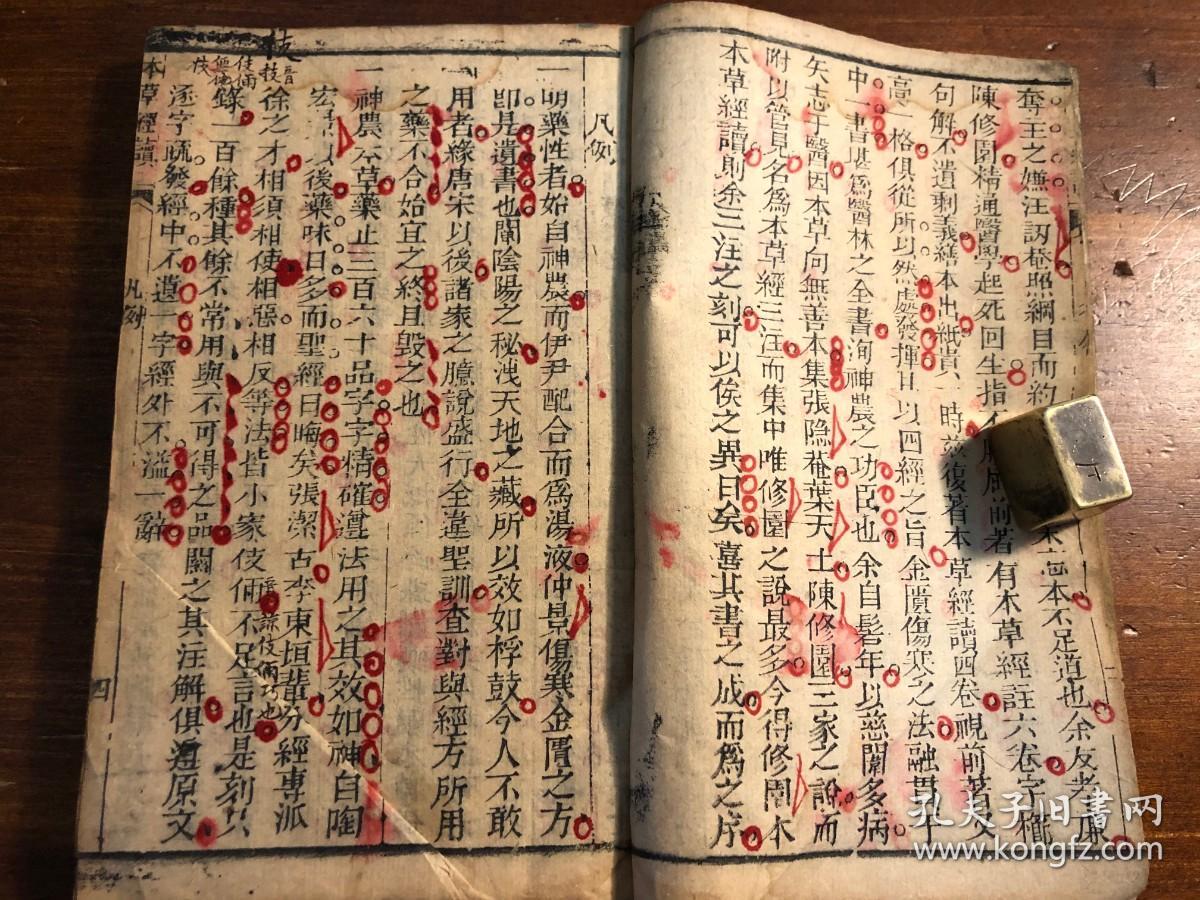 奪王之嫌汪訒菴照綱目而約
忘本不足道也余友孝廉
陳修園精通醫學起死回生指
前著有本草經註六卷字櫛
句解不遺剩義繕本出紙貴一時茲復著本草經讀四卷視前著又
高一格俱從所以然處發揮且以四經之旨金匱傷寒之法融貫于
中一書堪為醫林之全書洵神農之功臣也余自髫年以慈闈多病
矢志于醫因本草向無善本集張隐菴葉天士陳修園三家之說而
附以管見名為本草經三注而集中唯修園之說最多今得修園本
本草經讀則余三注之刻可以俟之異日矣喜其書之成而為之序
凡例
一明藥性者始自神農而伊尹配合而為湯液仲景傷寒金匱之方
即是遺書也闡陰陽之秘洩天地之藏所以效如桴鼓今人不敢
用者緣唐宋以後諸家之臆說盛行全違聖訓查對與經方所用
之藥不合始宜之終且毀之也
一神農本草藥止三百六十品字字精確遵法用之其效如神自陶
宏景以後藥味日多而聖經日晦矣張潔古李東垣輩分經專派
徐之才相須相使相惡相反等法皆小家伎倆不足言也是刻只
錄一百餘種其餘不常用與不可得之品闕之其注解俱遵原文
逐字疏發經中不遺一字經外不溢一辭
本草經讀
凡例
四
技
伎倆
孔夫子旧書网
www.kongfz.com